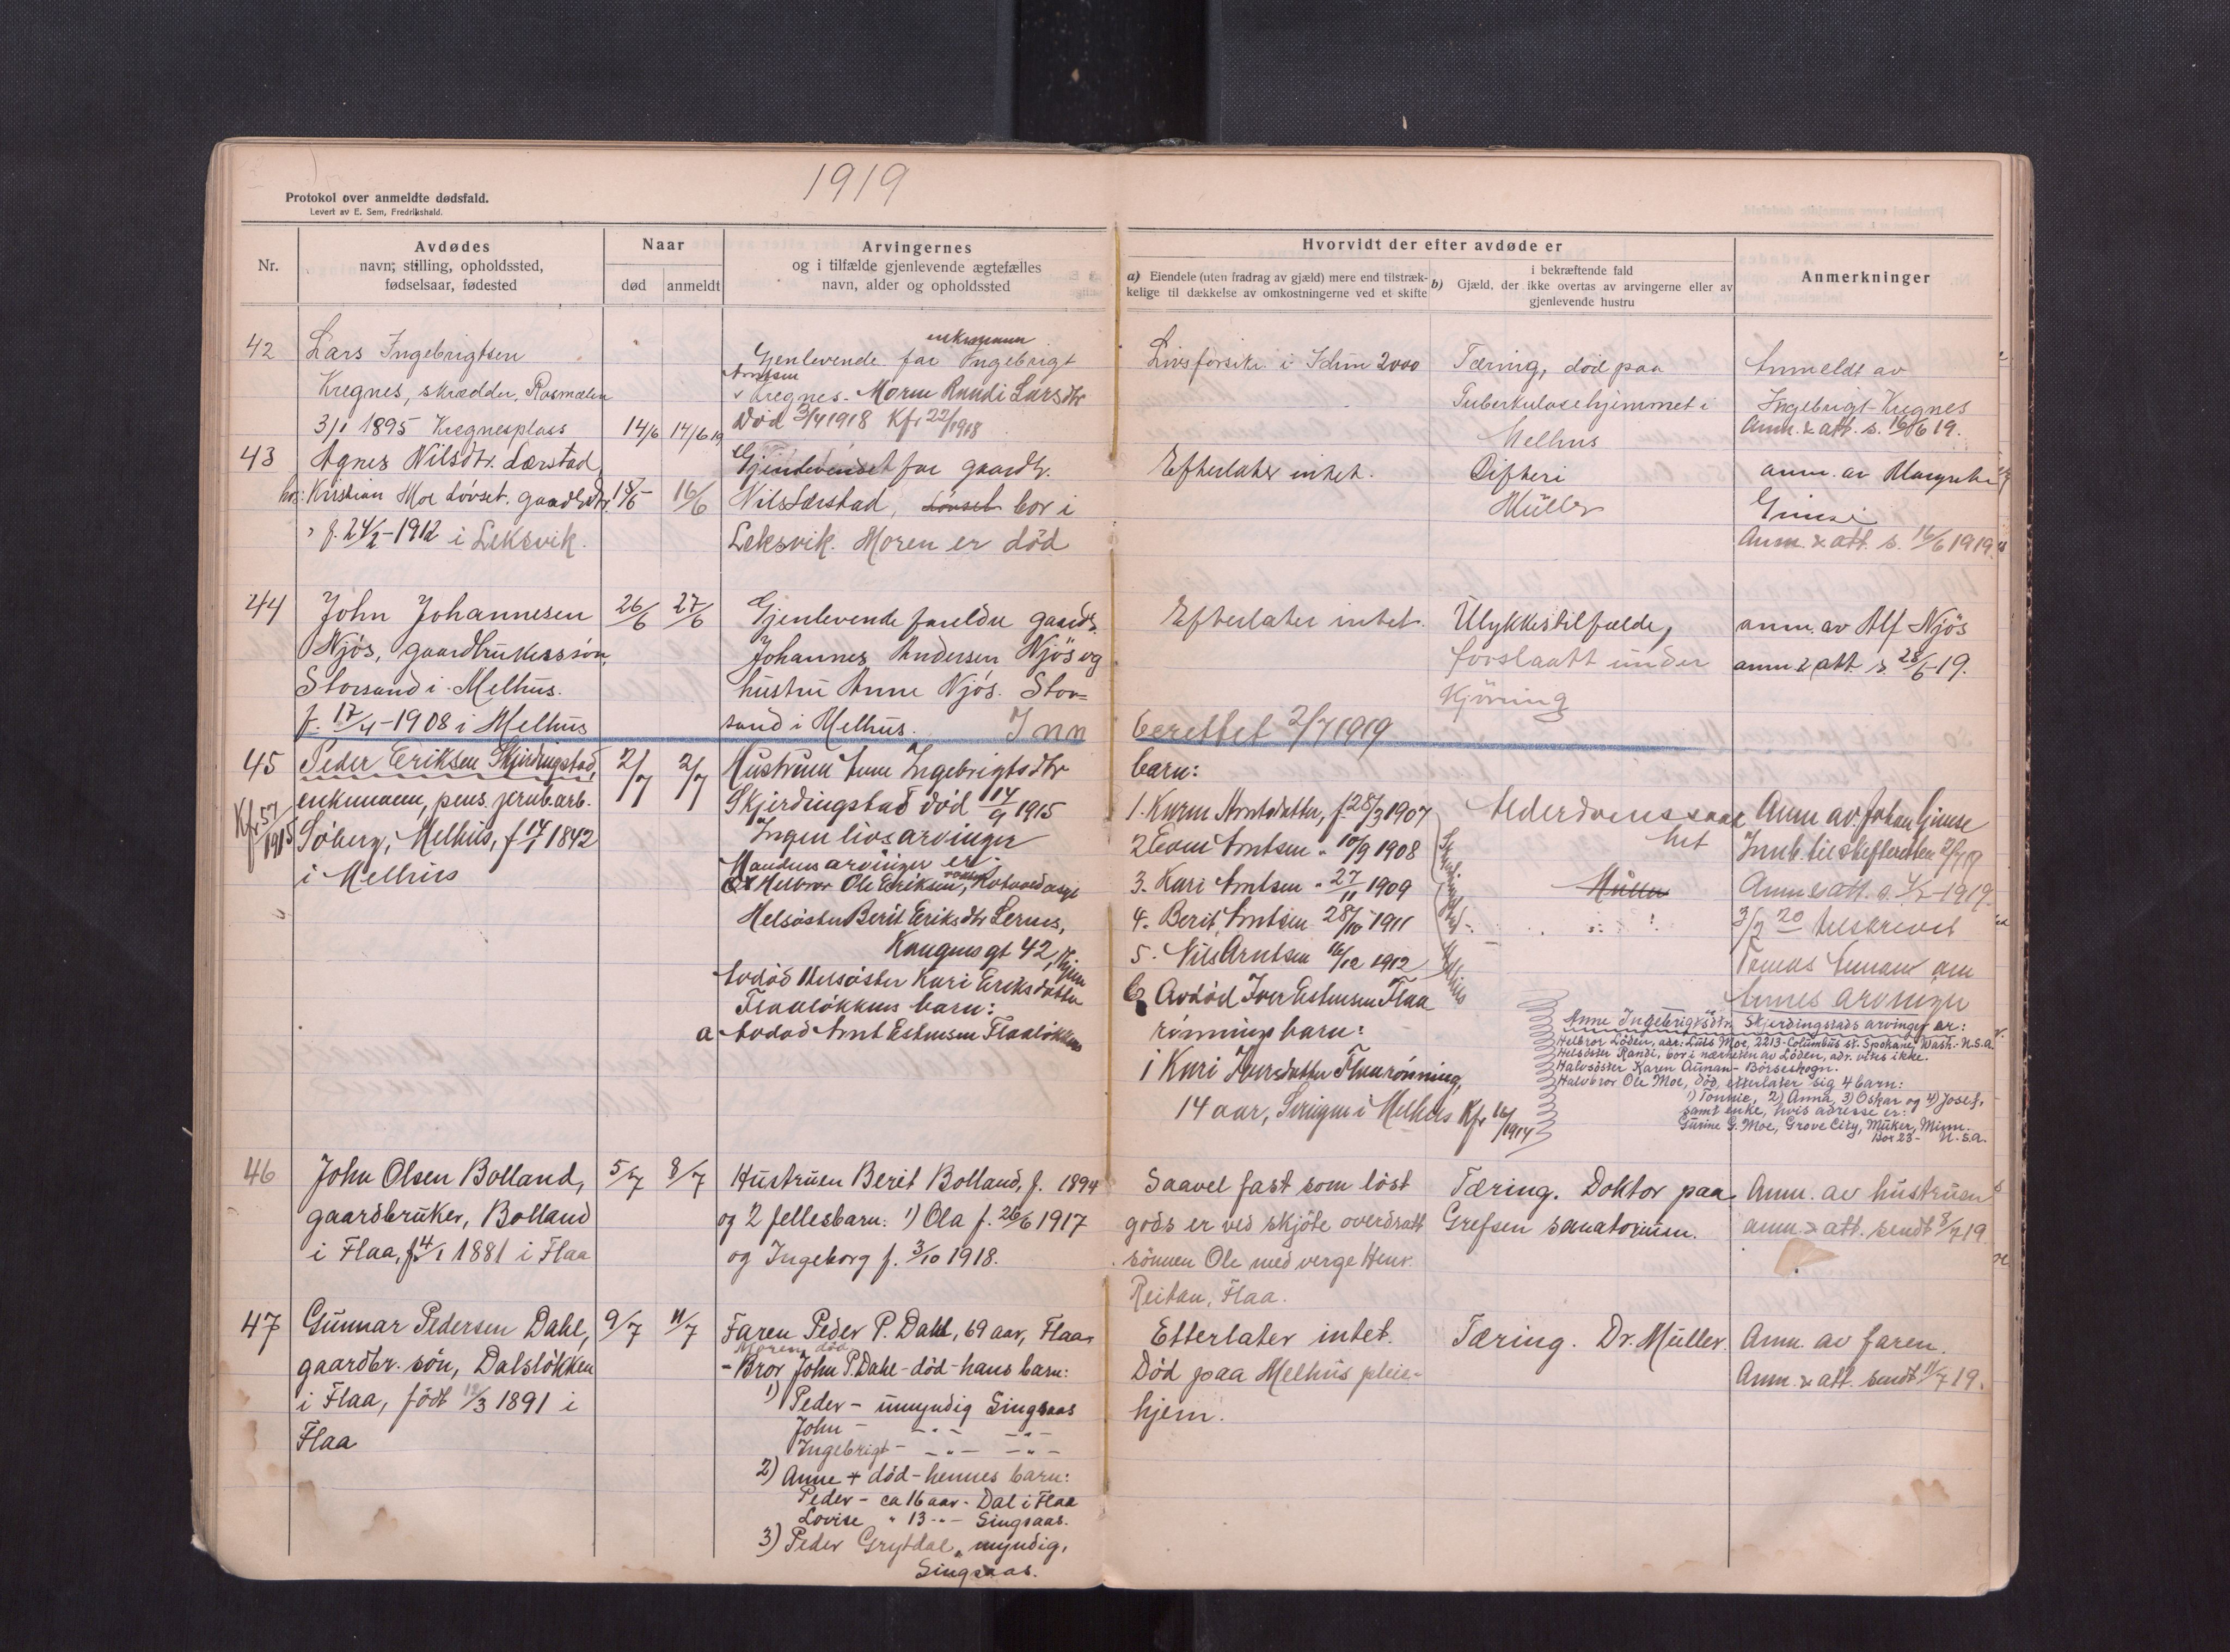 1919
Protokol over anmeldte dødsfald.
Levert av E. Sem, Fredrikshald.
Nr.
Avdødes
navn, stilling, opholdssted,
fødselsaar, fødested
Naar
død
anmeldt
Arvingernes
og i tilfælde gjenlevende ægtefælles
navn, alder og opholdssted
Hvorvidt der efter avdøde er
a) Eiendele (uten fradrag av gjæld) mere end tilstræk-
kelige til dækkelse av omkostningerne ved et skifte
i bekræftende fald
b) Gjæld, der ikke overtas av arvingerne eller av
gjenlevende hustru
Anmerkninger
42
Lars Ingebrigtsen
Kregnes, skrædder, Rosmælen
3/1 1895 Kregnesplass
14/6 14/6 19
enkemann
Gjenlevende far Ingebrigt
Arntsen
Kregnes. Moren Randi Larsdtr
Død 3/4 1918 Kfr 22/1918
Livsforsikr. i Idun 2000
Tæring, død paa
Tuberkulosehjemmet i
Melhus
Anmeldt av
Ingebrigt Kregnes
Anm. & att. s. 16/6 19.
43
Agnes Nilsdtr. Lærstad
hos: Kristian Moe Lövset. gaardbrdtr.
f. 24/2-1912 i Leksvik.
15/6
16/6
Gjenlevende far gaardbr.
Nils Lærstad, Lövset bor i
Leksvik. Moren er död
Efterlater intet.
Difteri
Müller
anm. av Margrete
Gimse
Anm. & att. s. 16/6 1919.
44
John Johannesen
Njös, gaardbrukerssön,
Storsand i Melhus.
f. 17/4-1908 i Melhus
26/6
27/6
Gjenlevende foreldre gaardb.
Johannes Andersen Njös og
hustru Anne Njös. Stor=
sand i Melhus.
Efterlater intet.
Ulykkestilfælde,
forslaatt under
Kjöring
anm. av Alf Njös
anm & att. s. 28/6-19.
Innberettet 2/7 1919
45
Kfr 57/1915
Peder Eriksen Skjerdingstad,
enkemann, pens. jernb.arb.
Söberg, Melhus, f 14/1 1842
i Melhus
2/7
2/7
Hustruen Anne Ingebrigtsdtr
Skjerdingstad död 14/9 1915
Ingen livsarvinger
Mandens arvinger er:
Helbror Ole Eriksen
Helsöster Berit Eriksdtr Lernes,
Kongensgt 42, Thjem
Avdöd Helsöster Kari Eriksdatter
Flaalökkens barn:
a Avdöd Arnt Estensen Flaalökkens
barn:
1. Karen Arntsdatter, f. 28/3 1907
2 Even Arntsen " 10/9 1908
3. Kari Arntsen " 27/11 1909
4. Berit Arntsen 28/10 1911
5. Nils Arntsen 16/12 1912
Skjerdingstad Melhus
b Avdöd Iver Estensen Flaa
rönnings barn:
1 Kari Iversdatter Flaarönning,
14 aar, Sørigen i Melhus Kfr 16/1914
Alderdomssvak
het
Müller
Anm av. Johan Gimse
Innb. til skifteretten 2/7 19
Anm & att. s. 4/7-1919.
3/2 20 tilskrevet
Tomas Aunan om
Annes arvinger
Anne Ingebrigtsdtr. Skjerdingstads arvinger er:
Helbror Löden, adr: Luis Moe, 2213-Columbus st. Spokane, Wash. U.S.A.
Helsöster Randi, bor i nærheten av Löden, adr. vites ikke.
Halvsöster Karen Aunan - Börseskogn.
Halvbror Ole Moe, död, etterlater sig 4 barn:
1) Tonnie, 2) Anna, 3) Oskar og 4) Josef,
samt enke, hvis adresse er:
Gurine G. Moe, Grove City, Müker, Minn.
Box 23- U.S.A.
46
John Olsen Bolland,
gaardbruker, Bolland
i Flaa, f. 4/1 1881 i Flaa
5/7
8/7
Hustruen Berit Bolland, f. 1894
og 2 fellesbarn: 1) Ola f. 26/6 1917
og Ingeborg f. 3/10 1918.
Saavel fast som löst
gods er ved skjöte overdratt
sönnen Ole med verge Henr.
Reitan, Flaa.
Tæring. Doktor paa
Grefsen sanatorium.
Anm. av hustruen
anm. & att. sendt 8/7 19.
47
Gunnar Pedersen Dahl,
gaardbr. sön, Dalslökken
i Flaa, födt 12/3 1891 i
Flaa
9/7
11/7
Faren Peder P. Dahl, 69 aar, Flaa
Moren död
- Bror John P. Dahl - död - hans barn:
1) Peder - umyndig Singsaas
John - -"- -"-
Ingebrigt - -"- -"-
2) Anne + död - hennes barn:
Peder - ca 16 aar - Dal i Flaa
Lovise " 13 -"- Singsaas.
3) Peder Grytdal, myndig,
Singsaas.
Etterlater intet.
Död paa Melhus pleie-
hjem.
Tæring. Dr. Müller.
Anm. av faren.
Anm. & att. sendt 11/7 19.